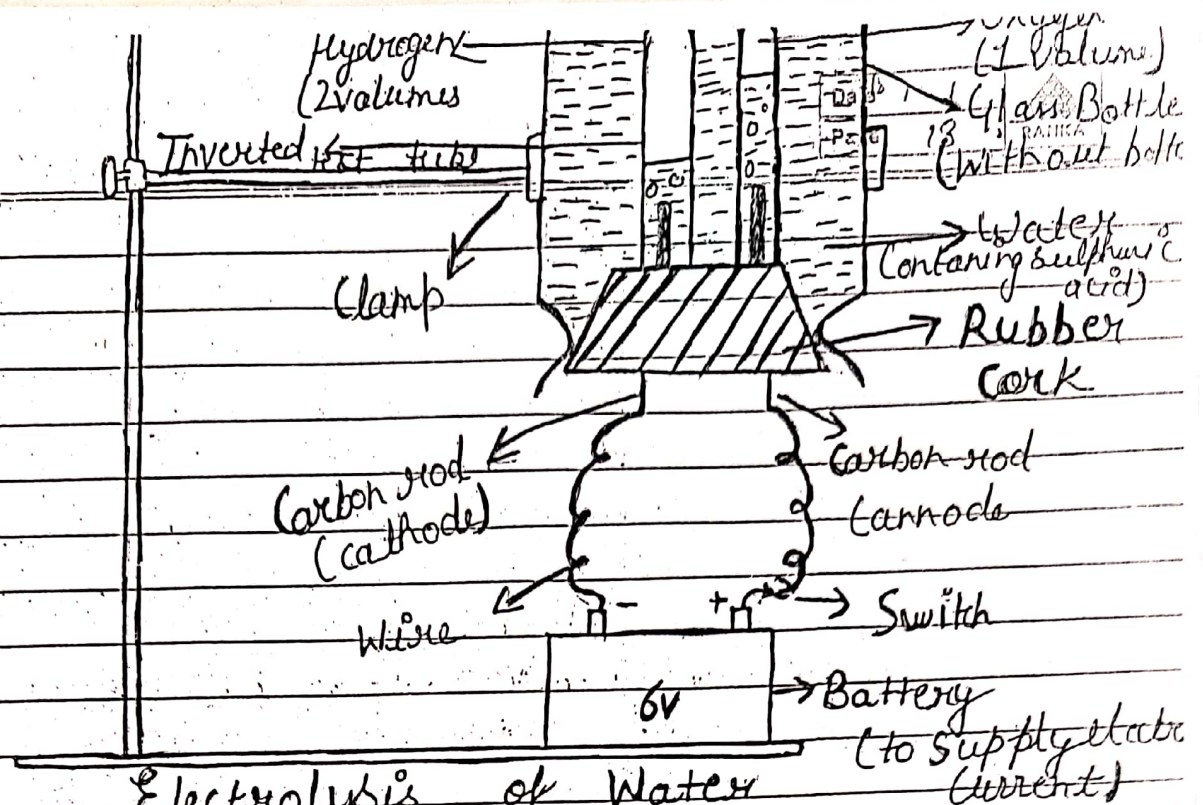 Hydrogen
(2volumes
Oxygen
(1 Valume)
Glass Bottle
(Without
Inverted test tube
Clamp
Water
Contaning sulphuric
acid)
Rubber
Cork
Carbon rod
(cathode)
Carbon rod
(annode
Wire
- +
Switch
6V
Battery
(to supply
Current)
Electrolysis of Water
Da
13
RANKA